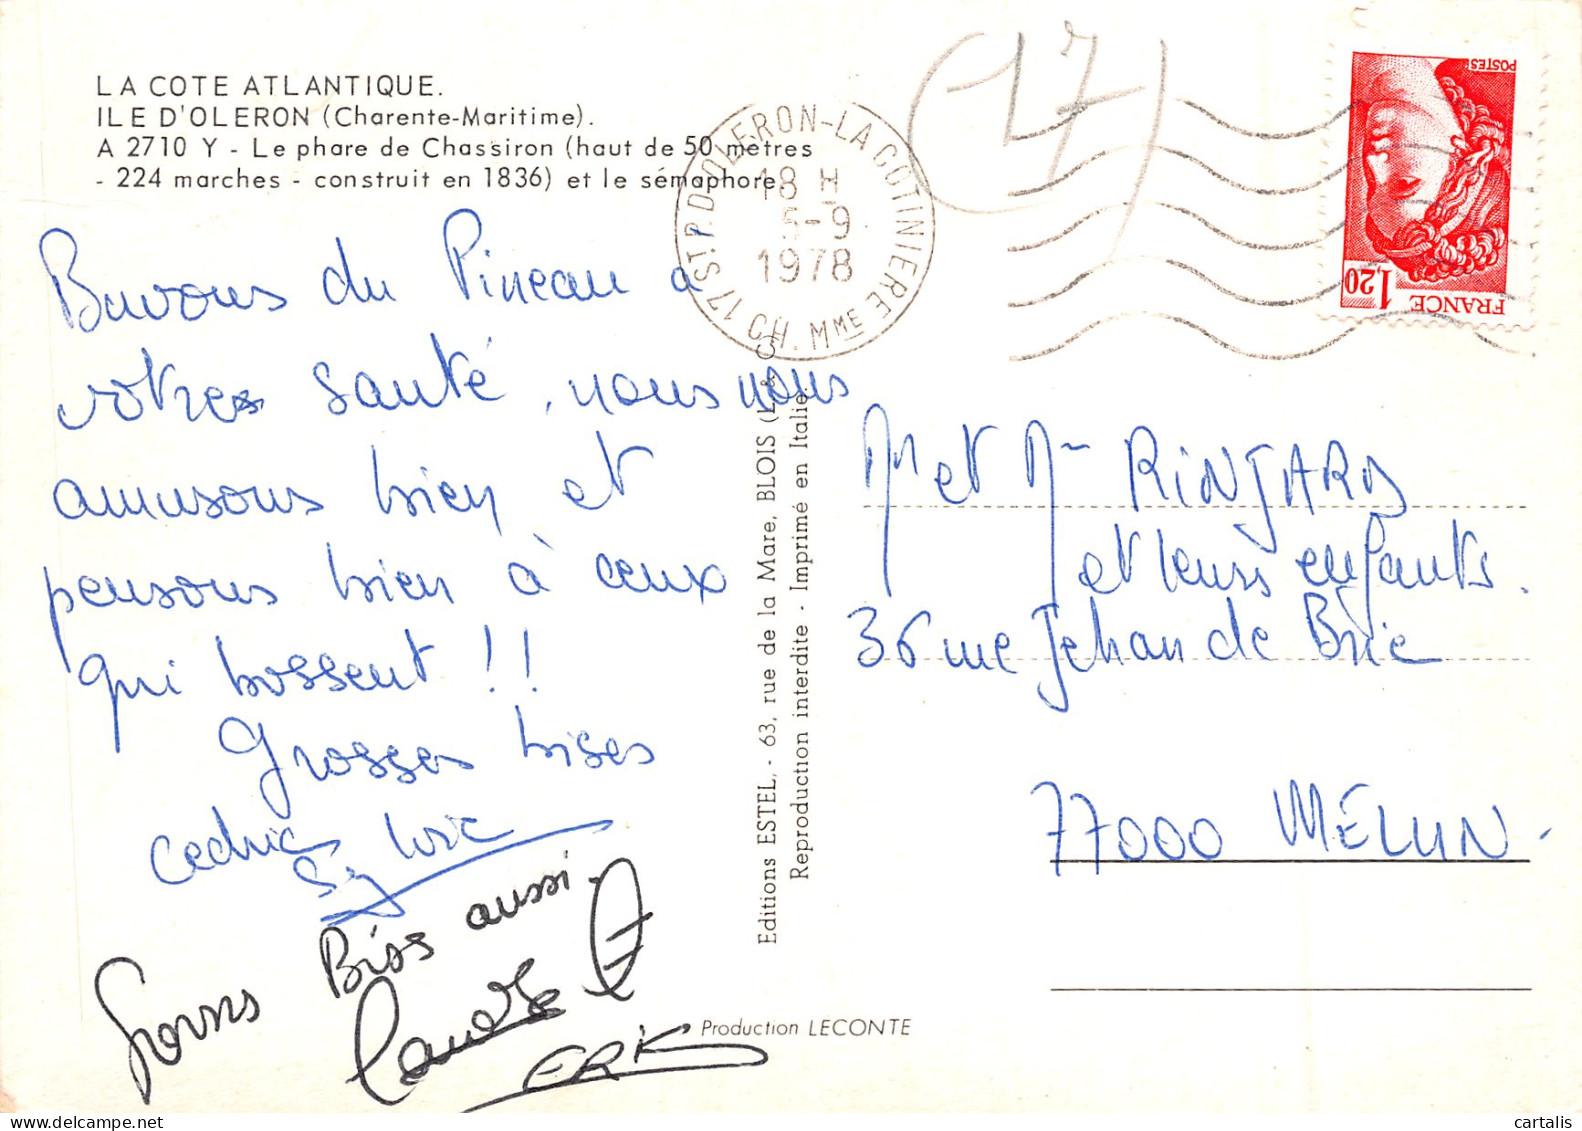 LA COTE ATLANTIQUE.
ILE D'OLERON (Charente-Maritime).
A 2710 Y - Le phare de Chassiron (haut de 50 mètres
- 224 marches - construit en 1836) et le sémaphore.
Buvons du Pineau à
votres santé, nous nous
amusons bien et
pensons bien à ceux
qui bossent !!
Grosses bises
Cedric Loïc
Bises aussi.
ERIK
17 ST P. D'OLERON-LA COTINIERE CH. MME
18 H
5-9
1978
17
POSTES
1,20
FRANCE
Editions ESTEL, - 63, rue de la Mare, BLOIS (L. & C.)
Reproduction interdite - Imprimé en Italie.
Production LECONTE
Mr et Mme RINJARD
et leurs enfants.
36 rue Jehan de Brie
77000 MELUN.
cartalis